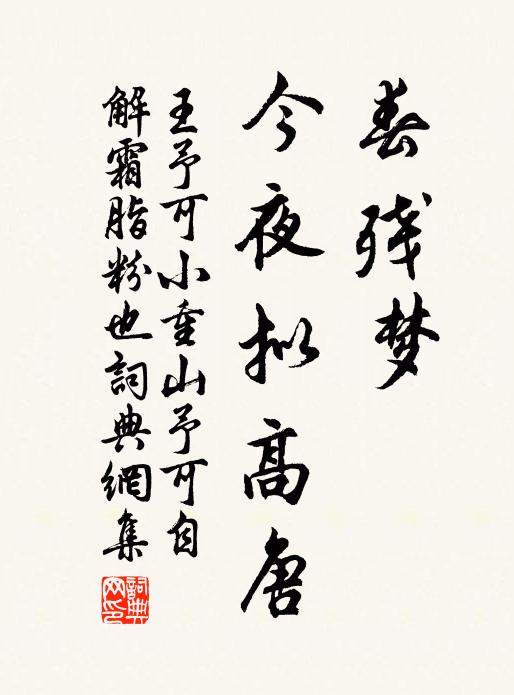 春残梦
今夜拟高唐
王予可小重山予可自
解霜脂粉也詞典網集
詞典
网印